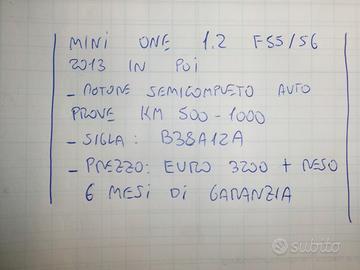 MINI ONE 1.2 F55/56
2013 IN POI
- MOTORE SEMICOMPLETO AUTO
PROVE KM 500-1000
- SIGLA: B38A12A
- PREZZO: EURO 3200 + RESO
6 MESI DI GARANZIA
subito